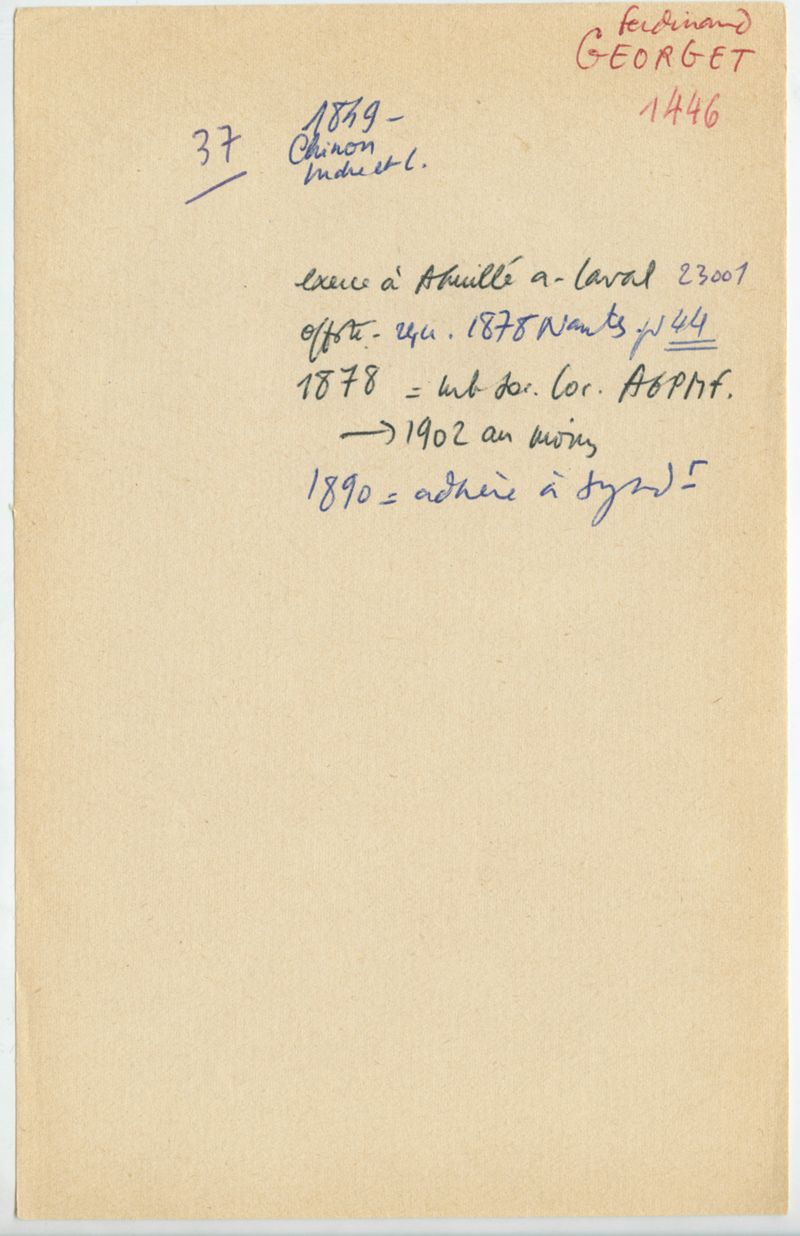 Ferdinand
GEORGET
1446
37
1849 -
Chinon
Indre et L.
exerce à Ahuillé a - Laval 23001
offsté - reçu . 1878 Nantes pr 44
1878 = mb soc. loc. AGPMF.
→ 1902 au moins
1890 = adhère à